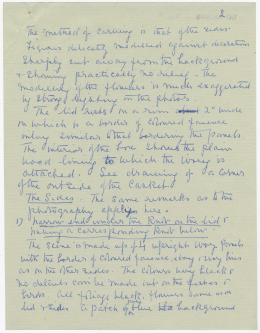 2
The method of carving is that of the sides
Figures delicately modelled against decoration
Sharply cut away from the background
& showing practically no relief. The
modelling of the flowers is much exaggerated
by strong lighting in the photos.
The lid rests on a rim 2" wide
on which is a border of coloured faience
inlay similar to that bordering the panels.
The interior of the box shows the plain
wood lining to which the ivory is
attached. See drawing of a corner
of the outside of the casket.
The Sides. The same remarks as to the
photography apply here.
1) Narrow side under the knob on the lid &
having a corresponding knob below.
The scene is made up of 4 upright ivory panels
with the border of coloured faience, ebony & ivory
as on the other sides. The colours being black &
no details can be made out on the
birds. All foliage black. flowers same as on
lid & sides. A patch of blue background